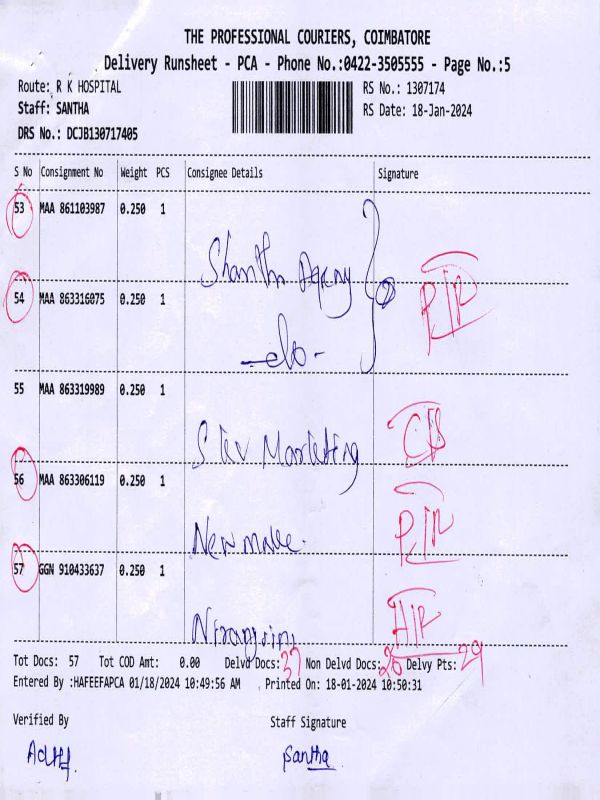 THE PROFESSIONAL COURIERS, COIMBATORE
Delivery Runsheet - PCA - Phone No.:0422-3505555 - Page No.:5
Route: R K HOSPITAL RS No.: 1307174
Staff: SANTHA RS Date: 18-Jan-2024
DRS No.: DCJB130717405
S No Consignment No Weight PCS Consignee Details Signature
53 MAA 861103987 0.250 1
Shanthi Agency
54 MAA 863316075 0.250 1
-do-
55 MAA 863319989 0.250 1
Marketing
56 MAA 863306119 0.250 1
57 GGN 910433637 0.250 1
Tot Docs: 57 Tot COD Amt: 0.00 Delvd Docs: 37 Non Delvd Docs: 20 Delvy Pts: 29
Entered By :HAFEEFAPCA 01/18/2024 10:49:56 AM Printed On: 18-01-2024 10:50:31
Verified By Staff Signature
Santha